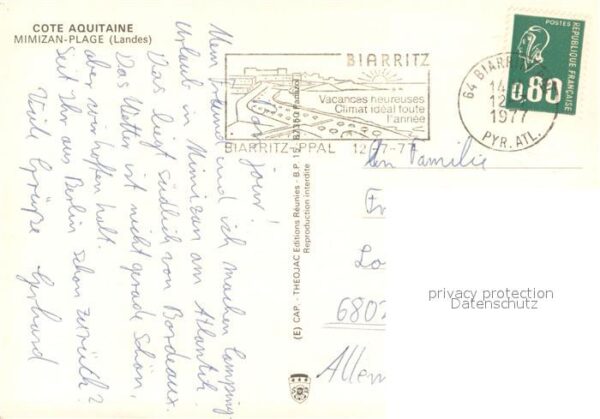 COTE AQUITAINE
MIMIZAN-PLAGE (Landes)
Bon jour!
Mein Freund und ich machen Camping
Urlaub in Mimizan am Atlantik.
Das liegt südlich von Bordeaux.
Das Wetter ist nicht gerade schön,
aber wir hoffen halt.
Seid Ihr aus Berlin schon zurück?
Viele Grüße Gerhard
(E) CAP. - THEOJAC Editions Réunies - B.P. 15 - 87350 Panazol
Reproduction interdite
BIARRITZ
Vacances heureuses
Climat idéal toute
l'année
BIARRITZ-PPAL 12-7-77
64 BIARRITZ
14
12
1977
PYR. ATL.
POSTES
0,80
REPUBLIQUE FRANÇAISE
Familie
6802
privacy protection
Datenschutz